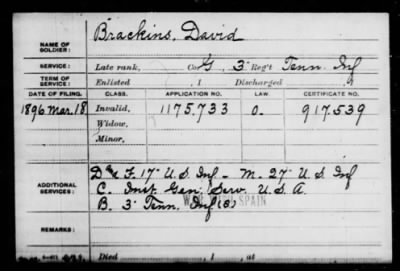 Brackins, David
NAME OF SOLDIER:
SERVICE: Late rank, Co. G, 3 Reg't Tenn. Inf
TERM OF SERVICE: Enlisted , 1 Discharged , 1
DATE OF FILING. CLASS. APPLICATION NO. LAW. CERTIFICATE NO.
1896 Mar. 18 Invalid, 1175.733 O. 917.539
Widow,
Minor,
F. 17" U S Inf - M. 27" U S Inf
ADDITIONAL SERVICES: C. Inst. Gen. Serv. U.S.A.
B. 3" Tenn. Inf
SPAIN
REMARKS:
Died , 1 , at